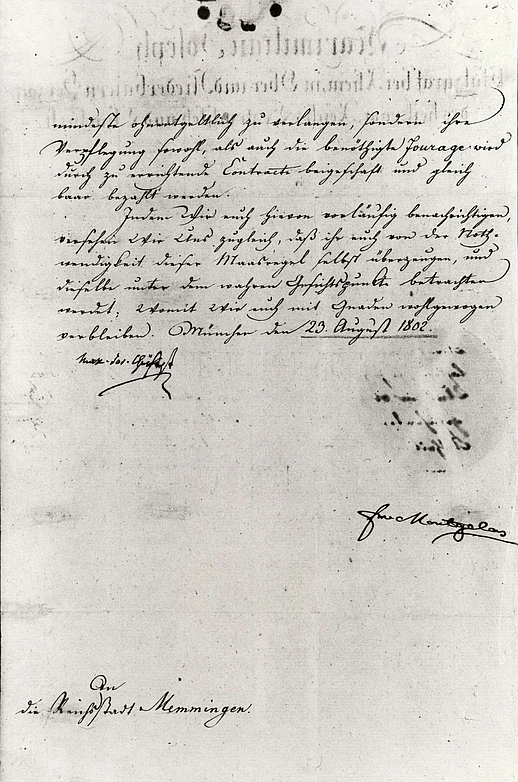 mindeste ohnentgeltlich zu verlangen, sondern ihre
Verpflegung sowohl, als auch die benöthigte Fourage wird
durch zu errichtende Contracte beigeschaft und gleich
baar bezahlt werden.
Indem Wir euch hievon vorläufig benachrichtigen,
versehen Wir Uns zugleich, daß ihr euch von der Noth-
wendigkeit dieser Maasregel selbst überzeugen, und
dieselbe unter dem wahren Gesichtspunkte betrachten
werdet; womit Wir euch mit Gnaden wohlgewogen
verbleiben. München den 23. August 1802.
Max. Jos. Churfürst
Montgelas
An
die Reichsstadt Memmingen.